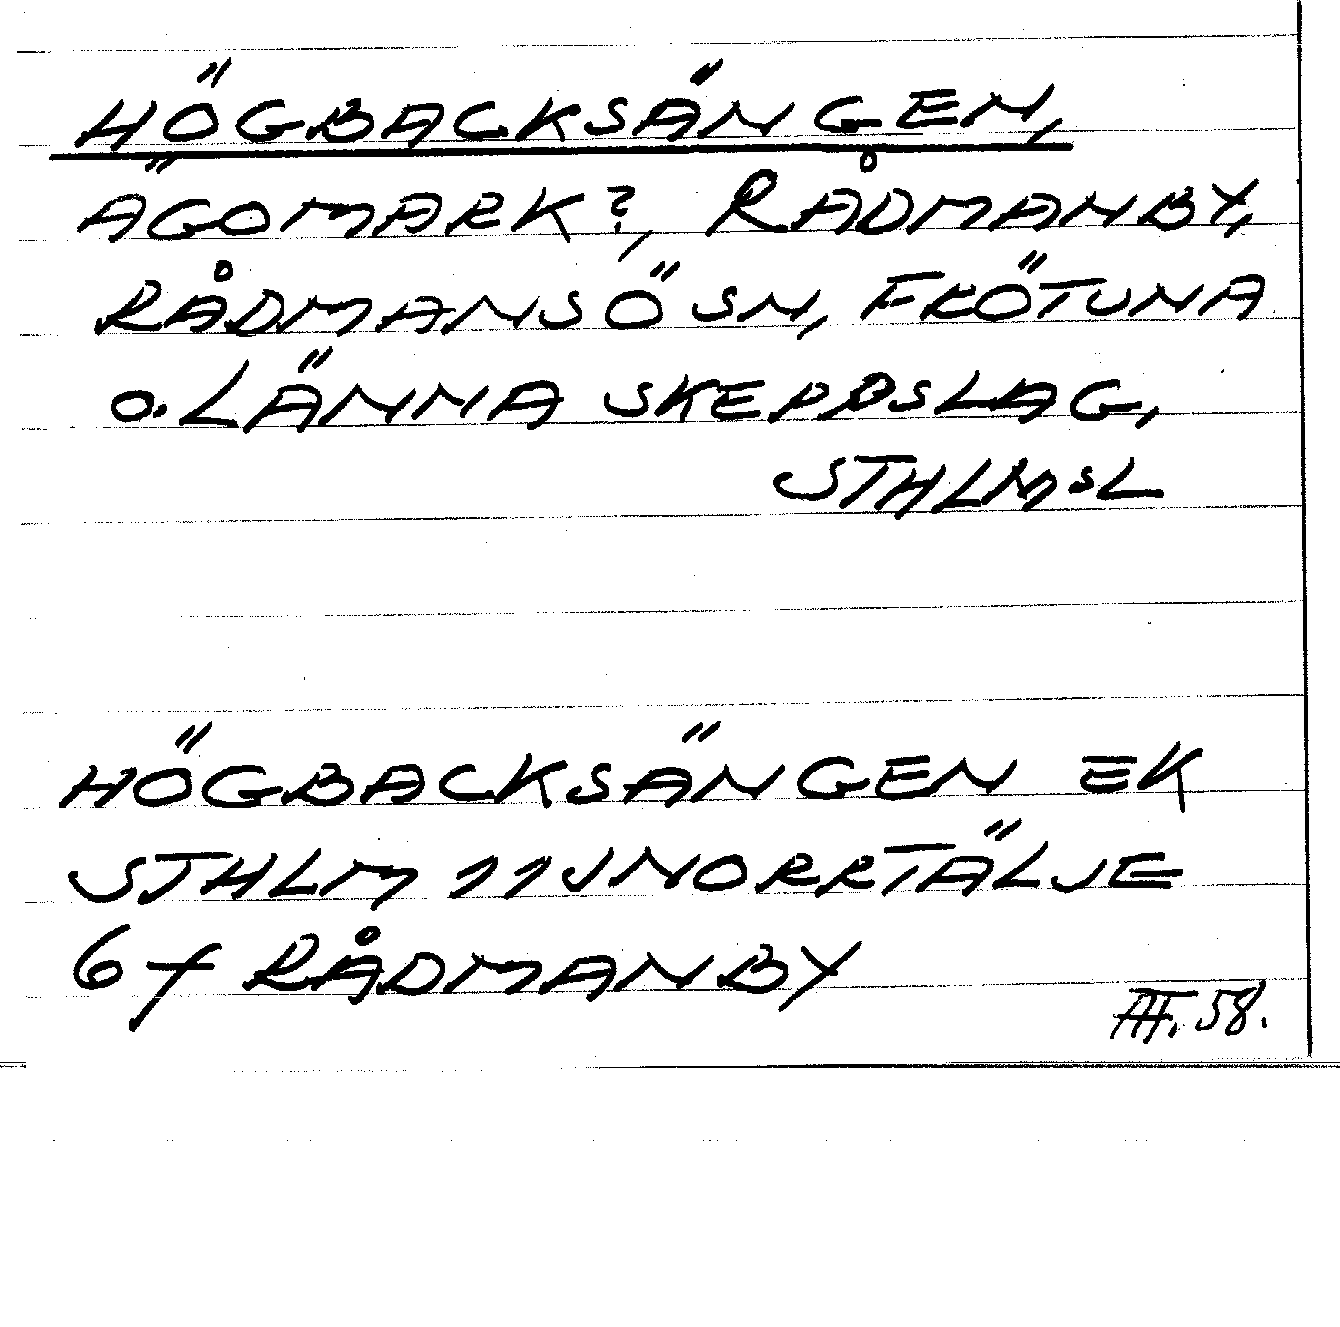 HÖGBACKSÄNGEN,
ÄGOMARK?, RÅDMANBY,
RÅDMANSÖ SN, FRÖTUNA
O. LÄNNA SKEPPSLAG,
STHLMSL
HÖGBACKSÄNGEN EK
STHLM 11J NORRTÄLJE
6f RÅDMANBY
58.